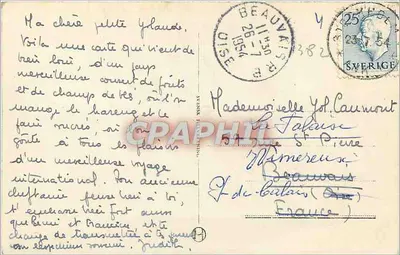 Ma chère petite Yolande.
Voilà une carte qui vient de
très loin, d'un pays
merveilleux couvert de forêts
et de champs de blé, où l'on
mange le hareng et le
pain sucrés, où l'on
goûte à tous les plaisirs
d'un merveilleux voyage
international. Ton ancienne
cheftaine pense bien à toi
t'embrasse bien fort ainsi
que et Francine, et te
charge de transmettre à ta
son souvenir. Judith
BEAUVAIS R.P.
11H30
26-7
1954
OISE
4
1382
25
SVERIGE
23
54
Mademoiselle Yol. Caumont
La Falaise
57 St Pierre
Wimereux
Beauvais
P. de Calais (Oise)
France)
CARTE-PHILA